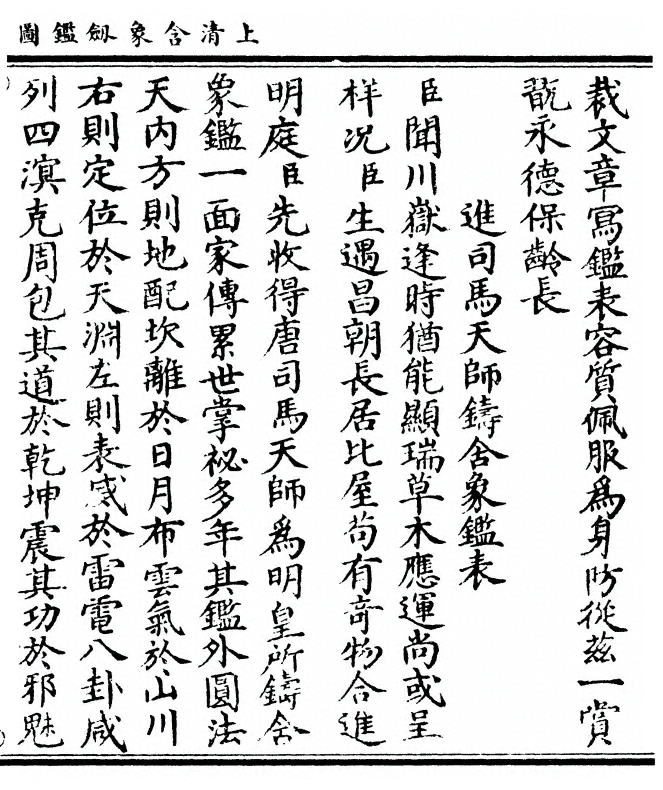 上清含象劔鑑圖
裁文章寫鑑表容質佩服爲身防從茲一賞
翫永德保齡長
進司馬天師鑄含象鑑表
臣聞川嶽逢時猶能顯瑞草木應運尚或呈
祥况臣生遇昌朝長居比屋苟有奇物合進
明庭臣先收得唐司馬天師爲明皇所鑄含
象鑑一面家傳累世掌祕多年其鑑外圓法
天内方則地配坎離於日月布雲氣於山川
右則定位於天淵左則表威於雷電八卦咸
列四溟克周包其道於乾坤震其功於邪魅